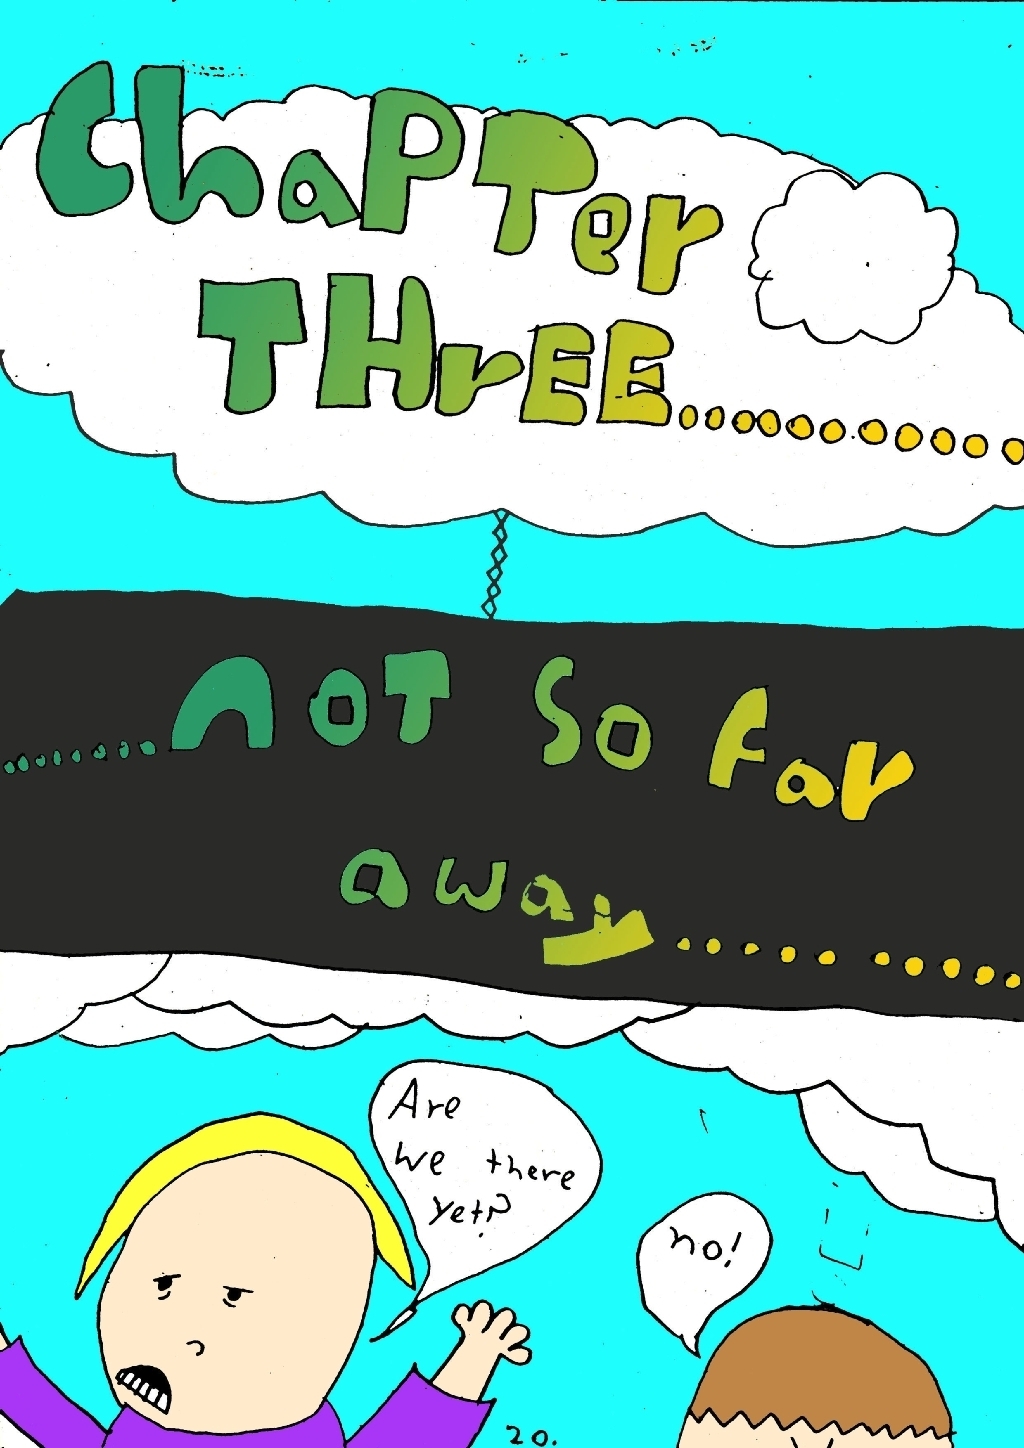 ChaPTer
THrEE............
........noT So far
away..........
Are
we there
yet?
no!
20.